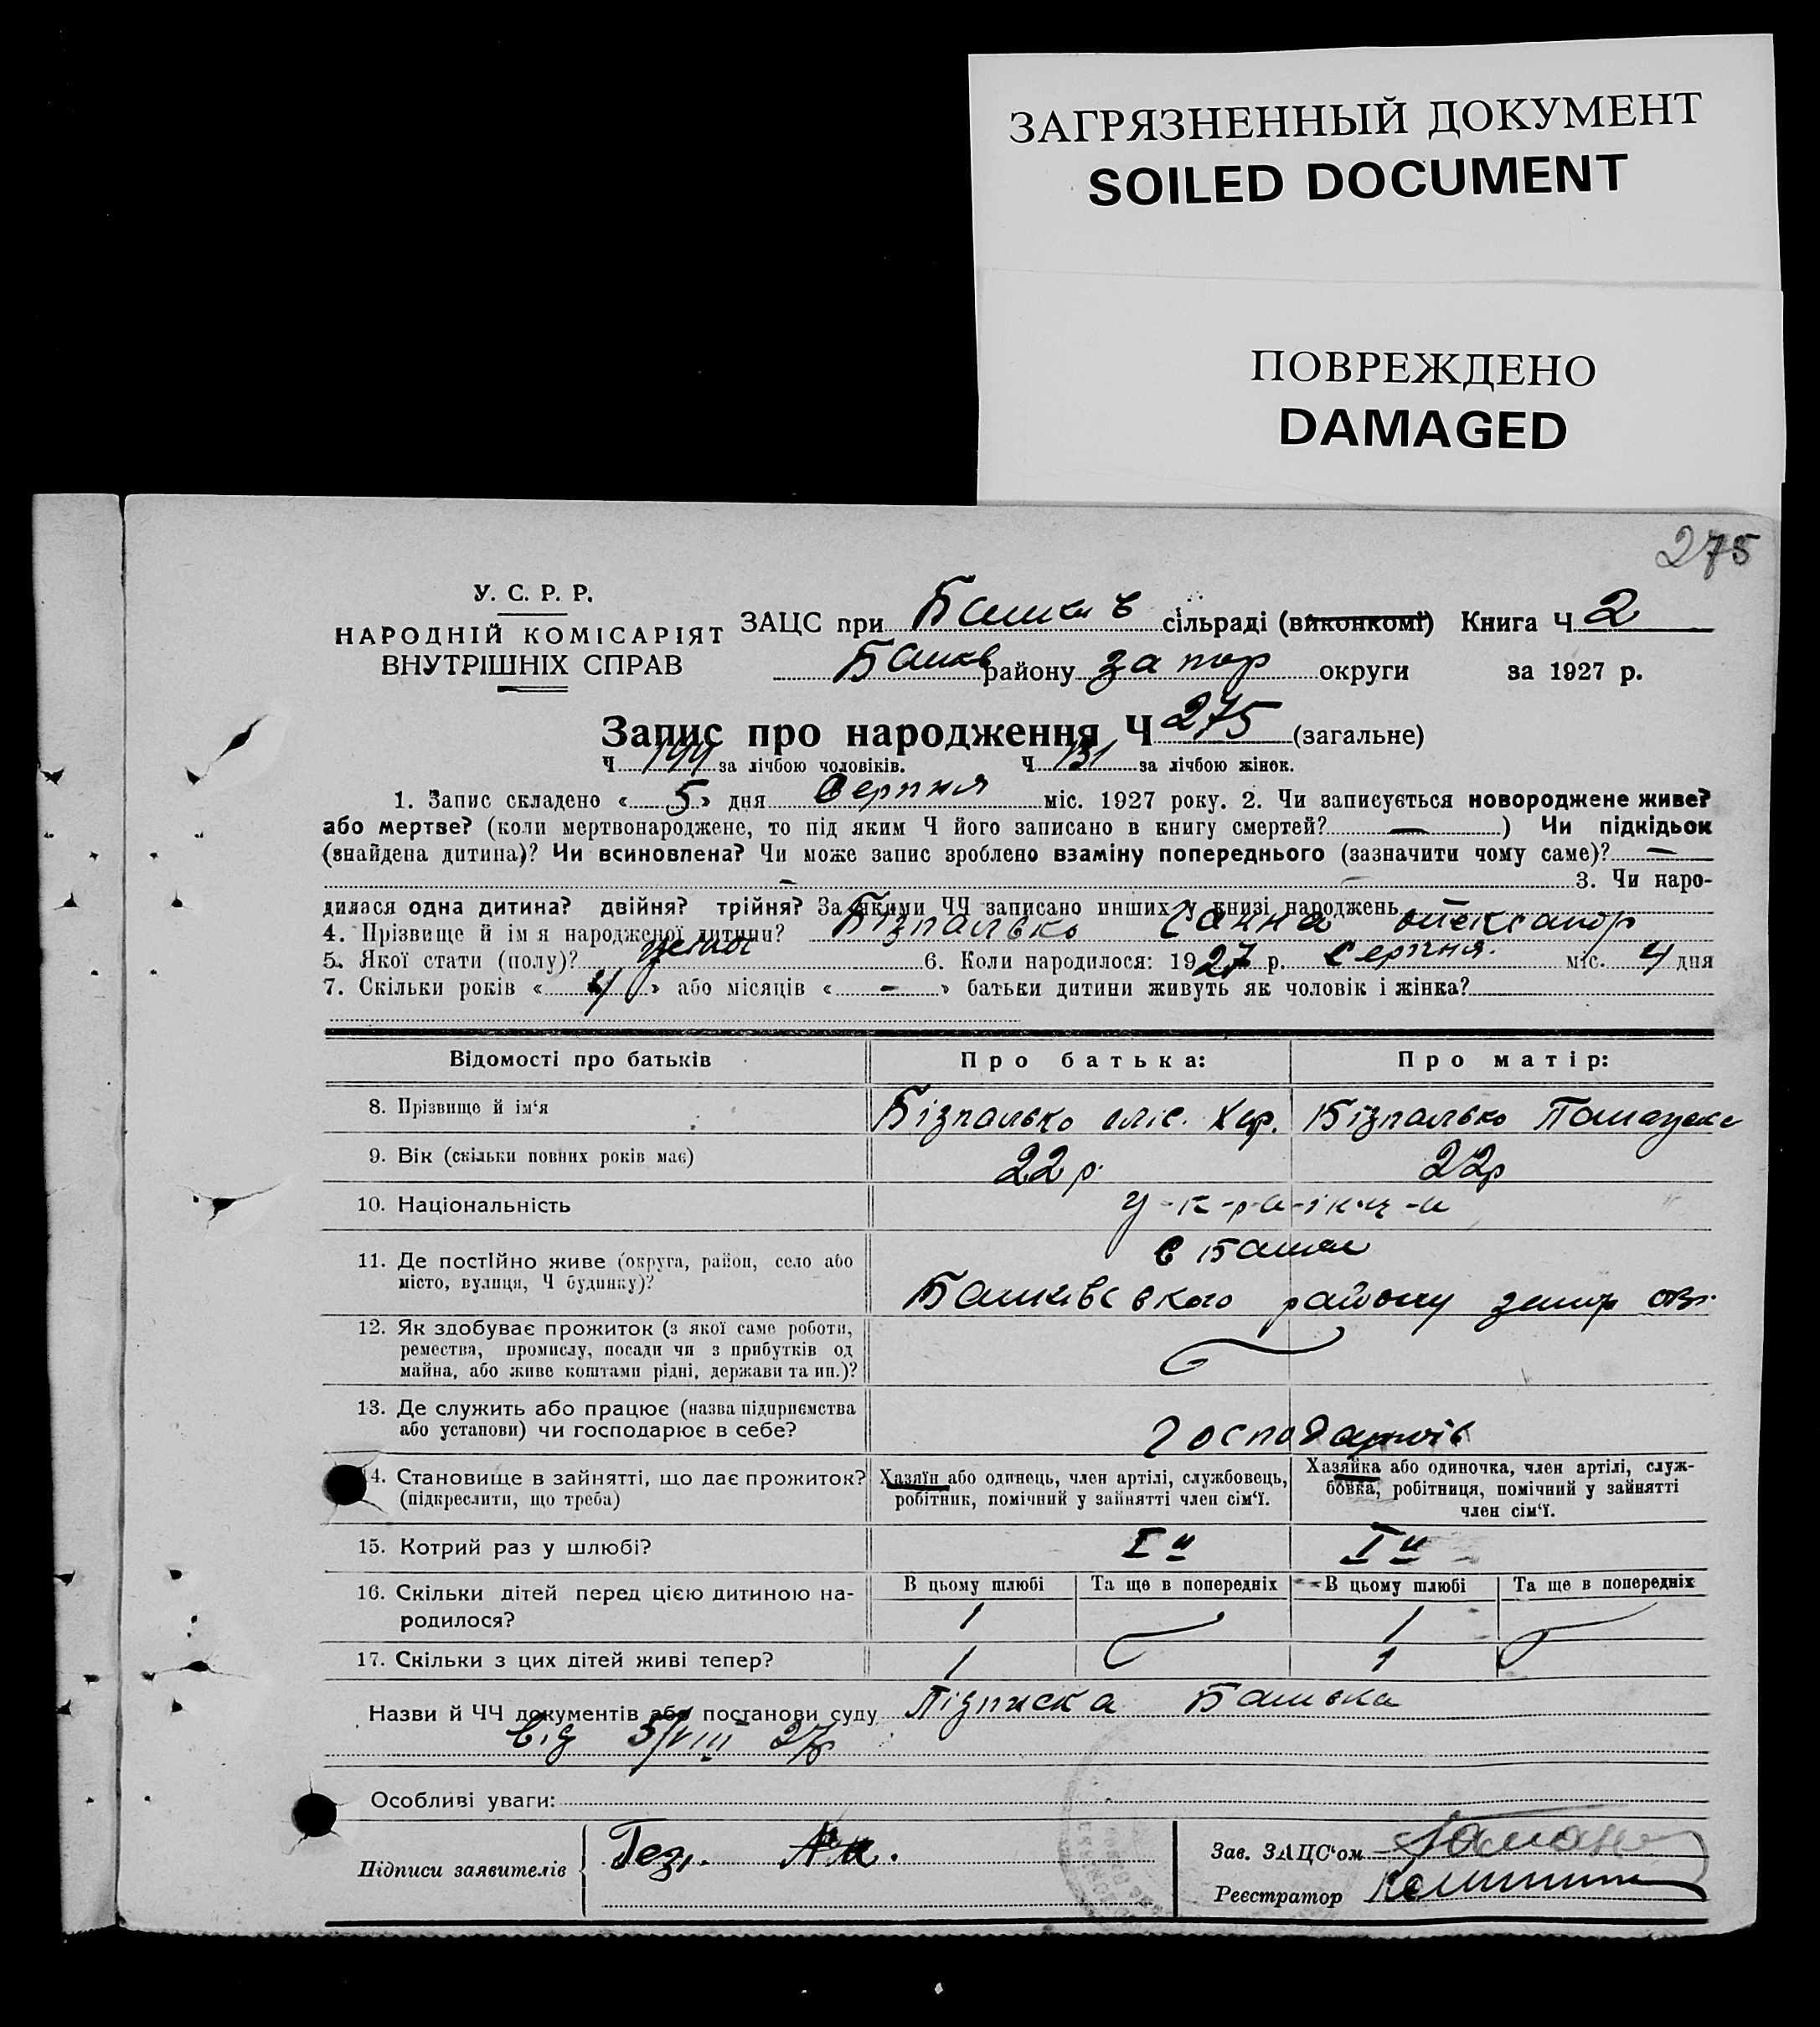 ЗАГРЯЗНЕННЫЙ ДОКУМЕНТ
SOILED DOCUMENT
ПОВРЕЖДЕНО
DAMAGED
275
У. С. Р. Р.
НАРОДНІЙ КОМІСАРІЯТ
ВНУТРІШНІХ СПРАВ
ЗАЦС при сільраді (виконкомі) Книга Ч 2
району запор округи за 1927 р.
Запис про народження Ч 275 (загальне)
Ч 144 за лічбою чоловіків. Ч 131 за лічбою жінок.
1. Запис складено « 5 » дня Серпня міс. 1927 року. 2. Чи записується новороджене живе?
або мертве? (коли мертвонароджене, то під яким Ч його записано в книгу смертей? — ) Чи підкідьок
(знайдена дитина)? Чи всиновлена? Чи може запис зроблено взаміну попереднього (зазначити чому саме)? —
3. Чи наро-
дилася одна дитина? двійня? трійня? За якими ЧЧ записано инших у книзі народжень
4. Прізвище й ім я народженої дитини? Бізпалько Ганна
5. Якої стати (полу)? 6. Коли народилося: 1927 р. Серпня міс. 4 дня
7. Скільки років « 4 » або місяців « - » батьки дитини живуть як чоловік і жінка?
Відомості про батьків
Про батька:
Про матір:
8. Прізвище й ім‘я
Бізпалько
Бізпалько
9. Вік (скільки повних років має)
22 р.
22р
10. Національність
у-к-р-а-їн-ц-и
11. Де постійно живе (округа, район, село або
місто, вулиця, Ч будинку)?
району
12. Як здобуває прожиток (з якої саме роботи,
ремества, промислу, посади чи з прибутків од
майна, або живе коштами рідні, держави та ин.)?
13. Де служить або працює (назва підприємства
або установи) чи господарює в себе?
14. Становище в зайнятті, що дає прожиток?
(підкреслити, що треба)
Хазяїн або одинець, член артілі, службовець,
робітник, помічний у зайнятті член сім‘ї.
Хазяйка або одиночка, член артілі, служ-
бовка, робітниця, помічний у зайнятті
член сім‘ї.
15. Котрий раз у шлюбі?
I й
I й
16. Скільки дітей перед цією дитиною на-
родилося?
В цьому шлюбі
Та ще в попередніх
В цьому шлюбі
Та ще в попередніх
1
1
17. Скільки з цих дітей живі тепер?
1
1
Назви й ЧЧ документів або постанови суду Підписка
від 5/VIII 27р
Особливі уваги:
Підписи заявителів
Зав. ЗАЦС‘ом
Реєстратор